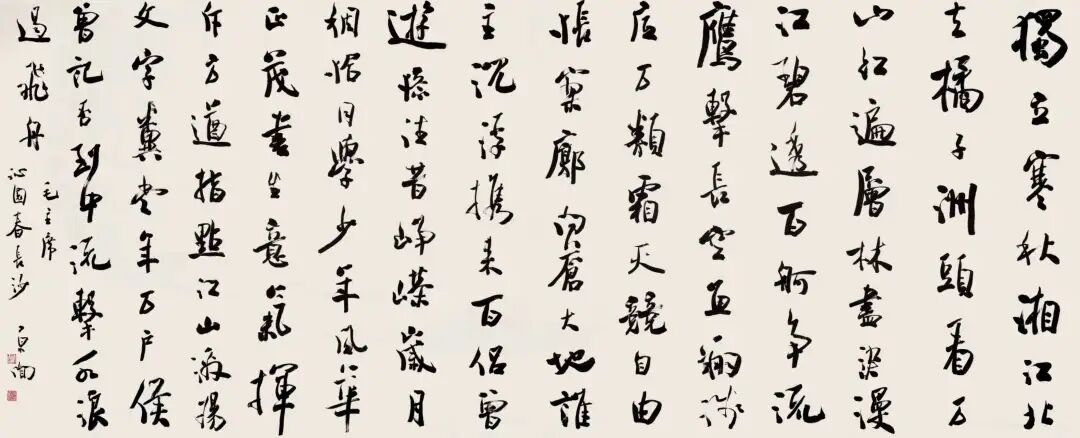 獨立寒秋湘江北
去橘子洲頭看万
山红遍層林盡染漫
江碧透百舸争流
鷹擊長空魚翔淺
底万類霜天競自由
悵寥廓问蒼大地誰
主沉浮携来百侣曾
遊憶往昔崢嶸歲月
稠恰同學少年風華
正茂書生意氣揮
斥方遒指點江山激揚
文字糞当年万户侯
曾記否到中流擊水浪
遏飛舟
毛主席
沁園春長沙